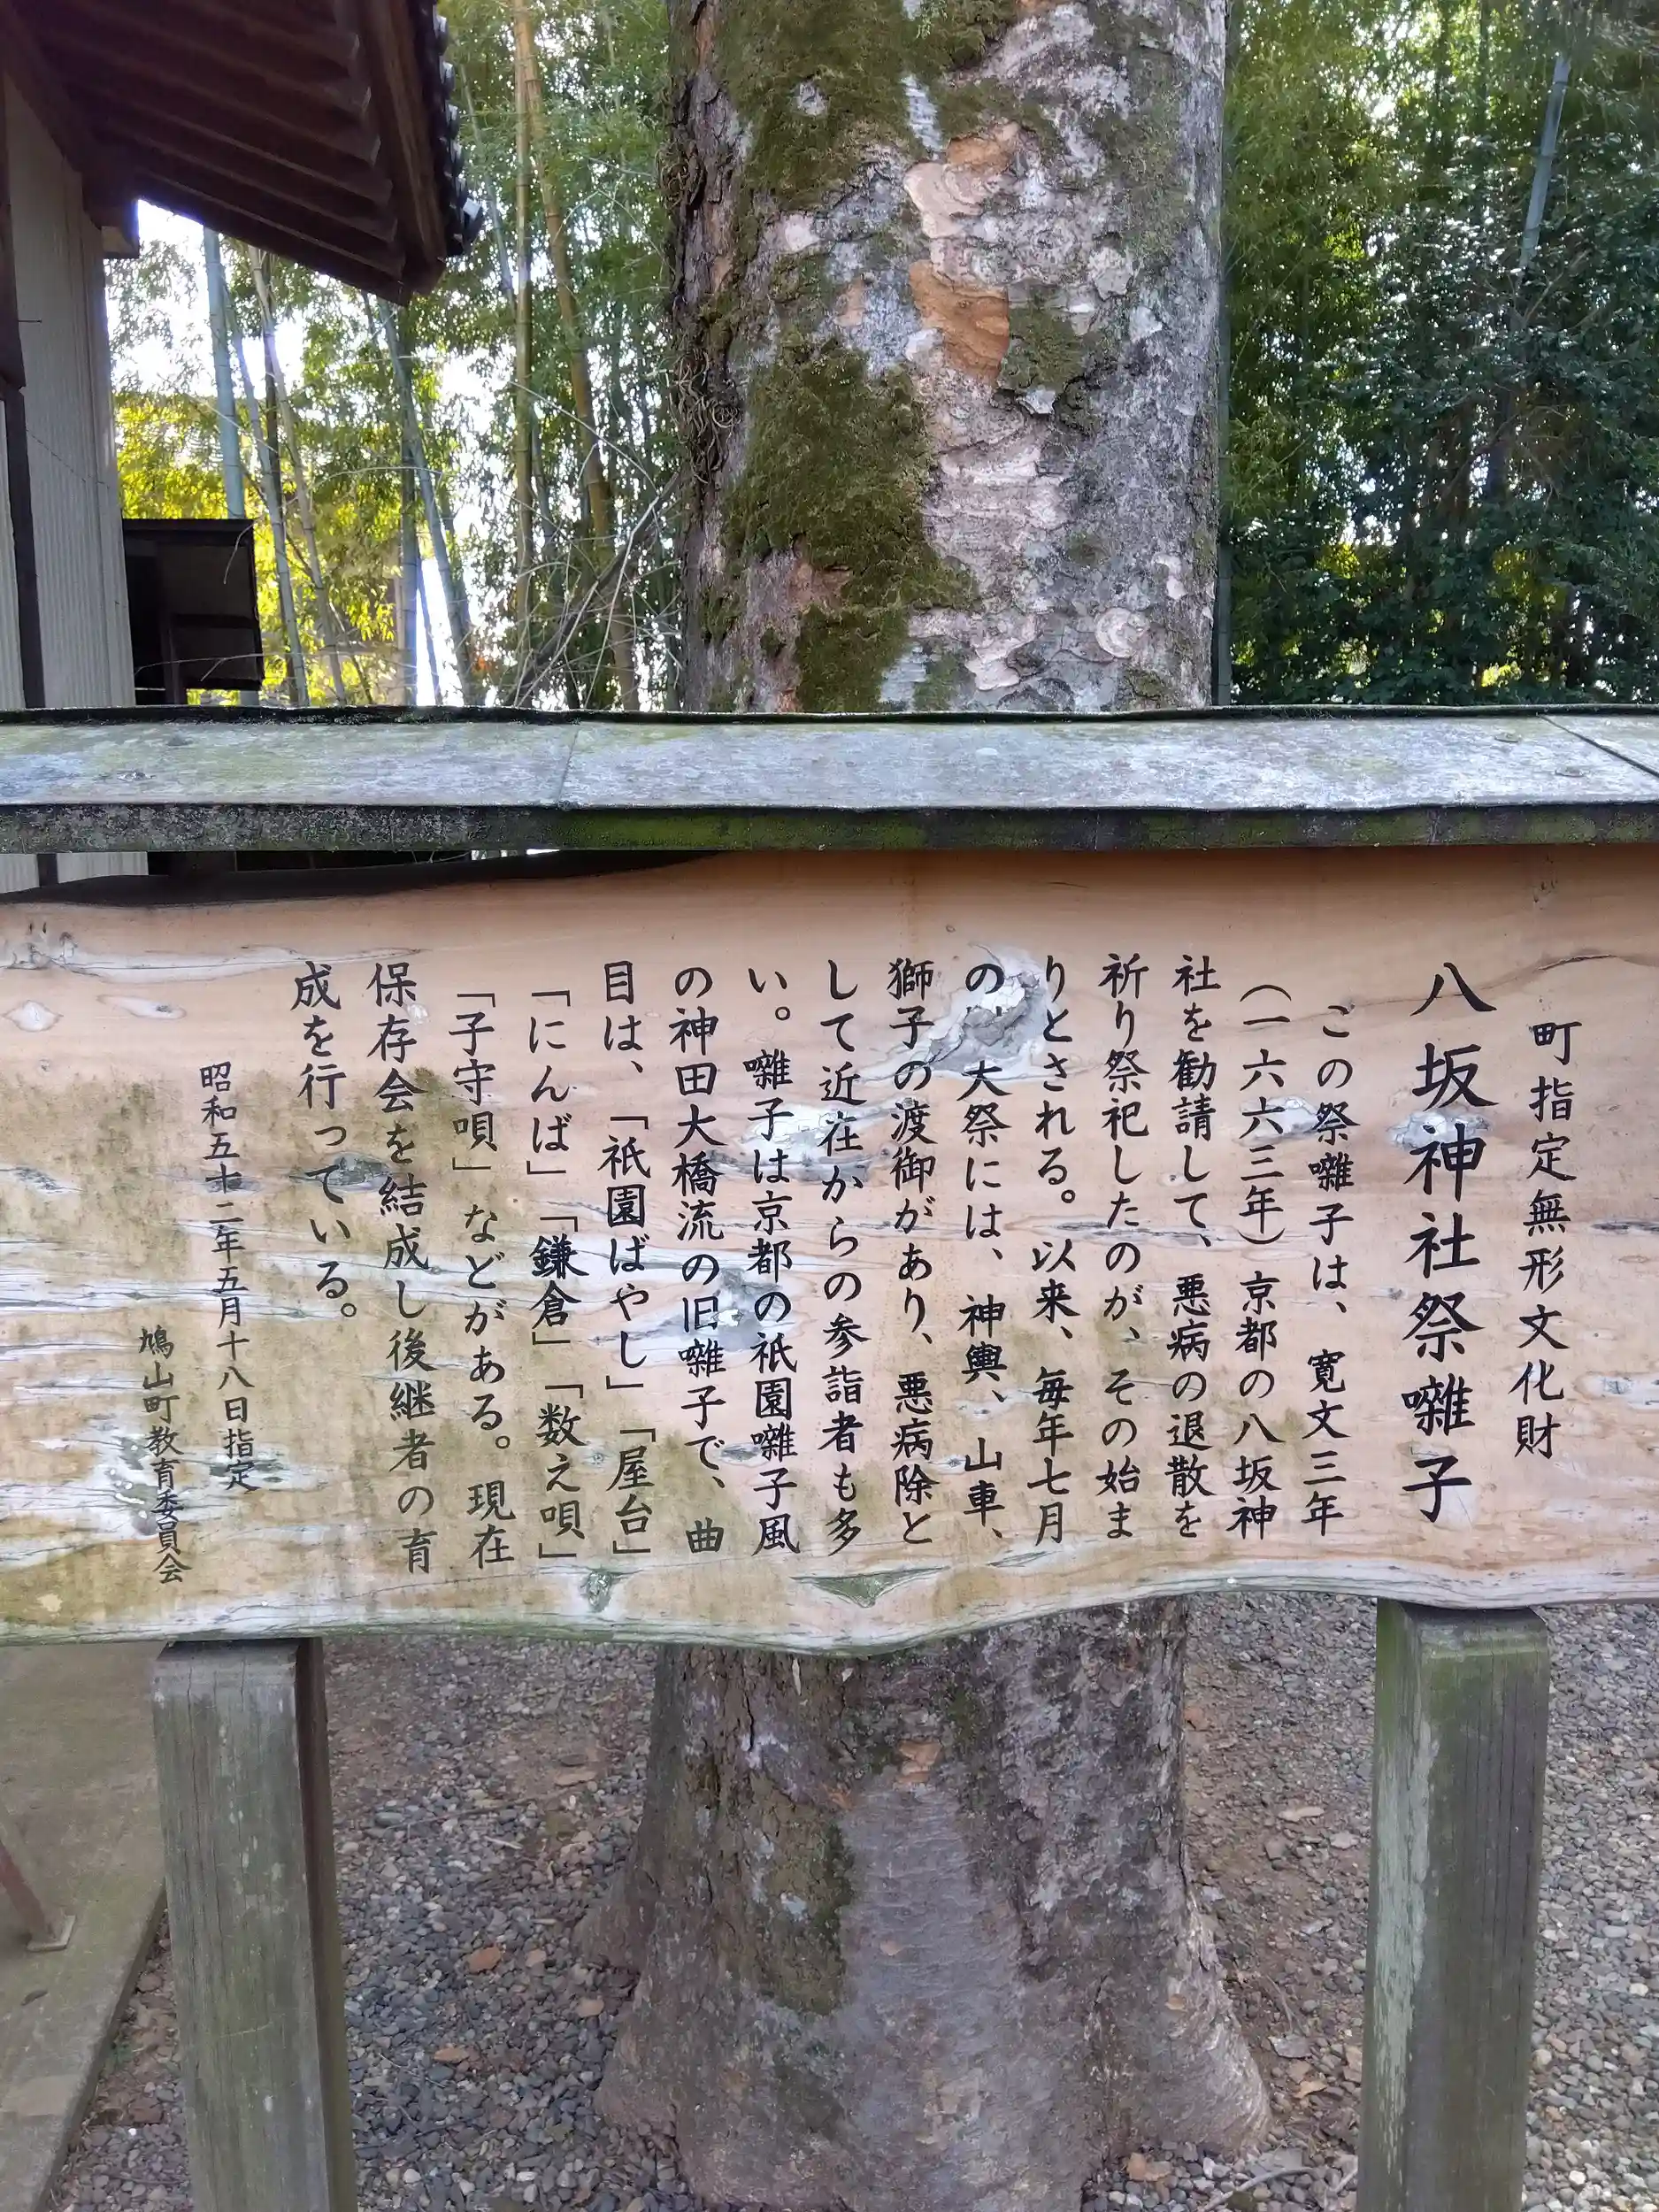 町指定無形文化財
八坂神社祭囃子
この祭囃子は、寛文三年
(一六六三年)京都の八坂神
社を勧請して、悪病の退散を
祈り祭祀したのが、その始ま
りとされる。以来、毎年七月
の 大祭には、神輿、山車、
獅子の渡御があり、悪病除と
して近在からの参詣者も多
い。囃子は京都の祇園囃子風
の神田大橋流の旧囃子で、曲
目は、「祇園ばやし」「屋台」
「にんば」「鎌倉」「数え唄」
「子守唄」などがある。現在
保存会を結成し後継者の育
成を行っている。
昭和五十二年五月十八日指定
鳩山町教育委員会